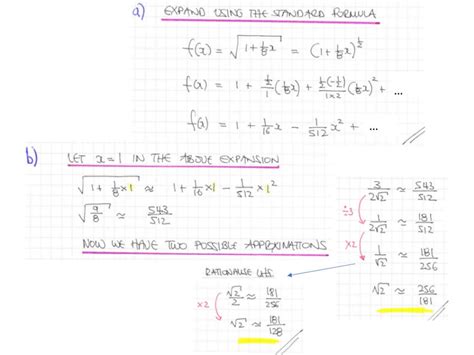 a) EXPAND USING THE STANDARD FORMULA
f(x) = √(1 + 1/8 x) = (1 + 1/8 x)^(1/2)
f(x) = 1 + (1/2)/1 (1/8 x) + (1/2(-1/2))/(1×2) (1/8 x)² + ...
f(x) = 1 + 1/16 x - 1/512 x² + ...
b) LET x=1 IN THE ABOVE EXPANSION
√(1 + 1/8 ×1) ≈ 1 + 1/16 ×1 - 1/512 ×1²
√(9/8) ≈ 543/512
NOW WE HAVE TWO POSSIBLE APPROXIMATIONS
RATIONALISE LHS
√2/2 ≈ 181/256
×2
√2 ≈ 181/128
3/(2√2) ≈ 543/512
÷3
1/(2√2) ≈ 181/512
×2
1/√2 ≈ 181/256
√2 ≈ 256/181